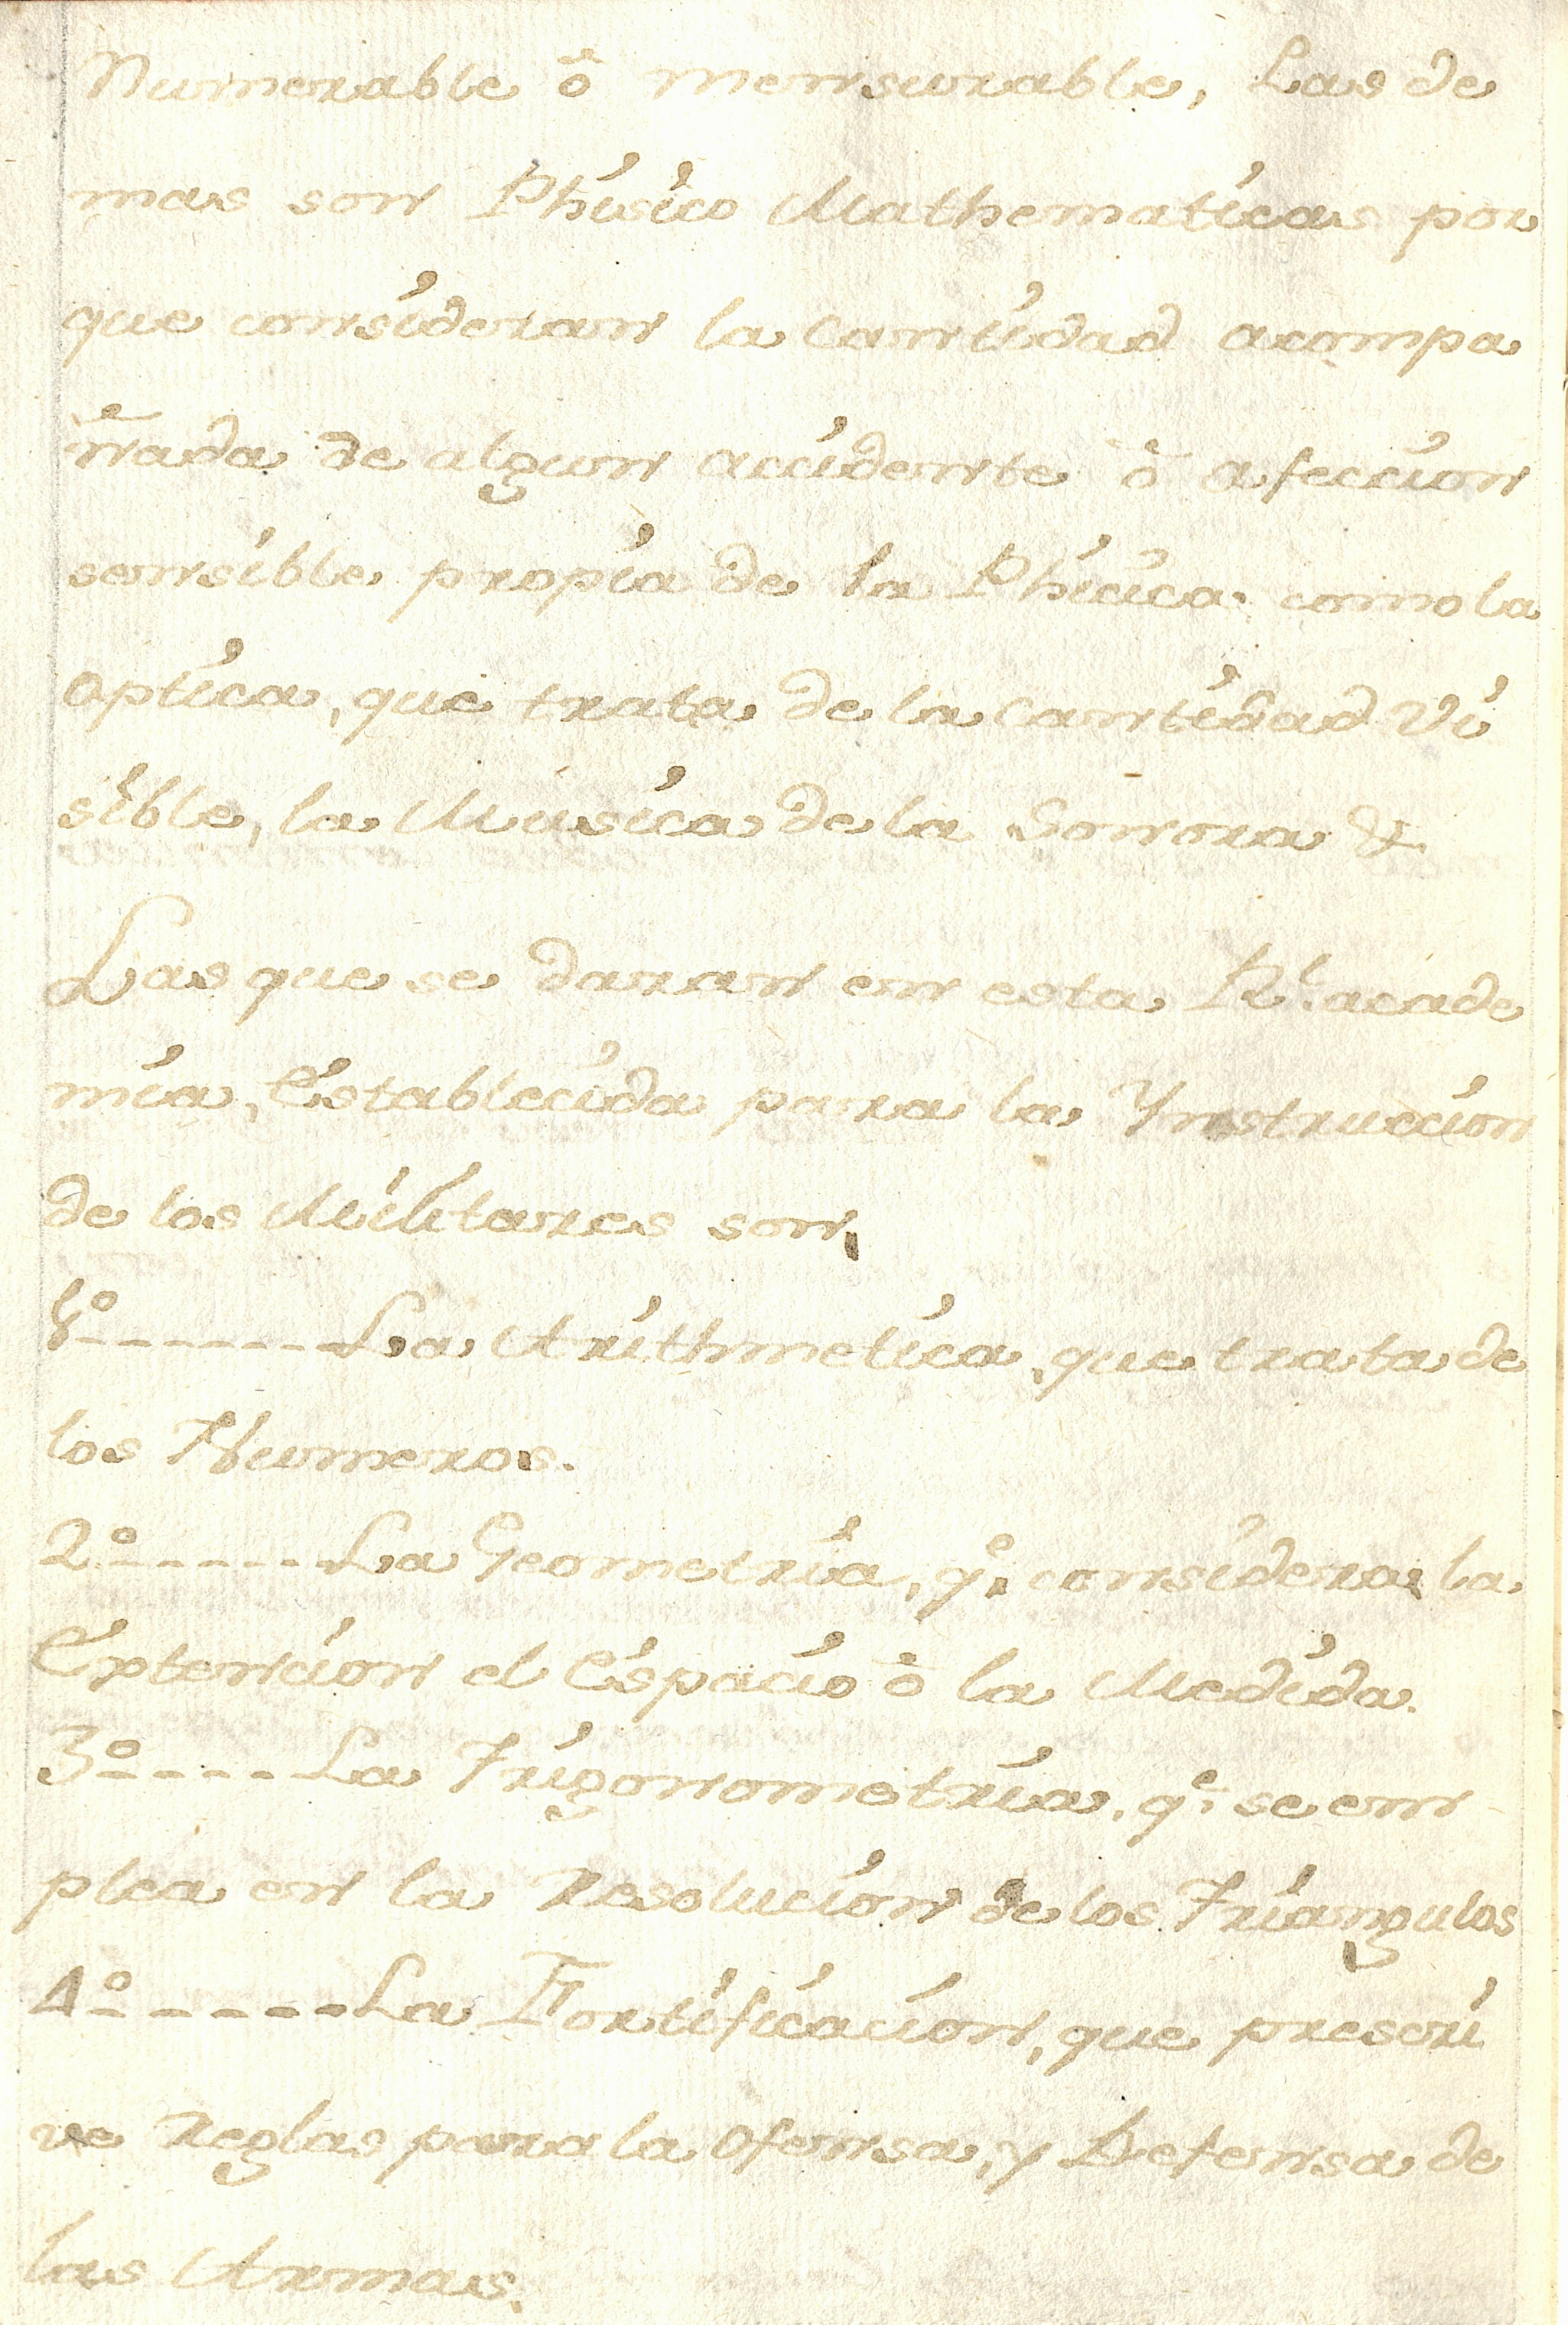 Numerable ô mensurable, Las de
mas son Phisico Mathematicas por
que consideran la Cantidad acompa
ñada de algun accidente ô afeccion
sensible propia de la Phicica. como la
optica, que trata de la Cantidad Vi
sible, la Musica de la Sonora &.
Las que se daran en esta Rl. acade
mia, Establecida para la Ynstruccion
de los Militares son,
1º------La Arithmetica, que trata de
los Numeros.
2º------La Geometria, qe. considera la
Extencion el Espacio ô la Medida.
3º-----La Trigonometria, qe. se em
plea en la Resolucion de los Triangulos
4º------La Fortificacion, que prescri
ve Reglas para la ofensa, y Defensa de
las Armas.